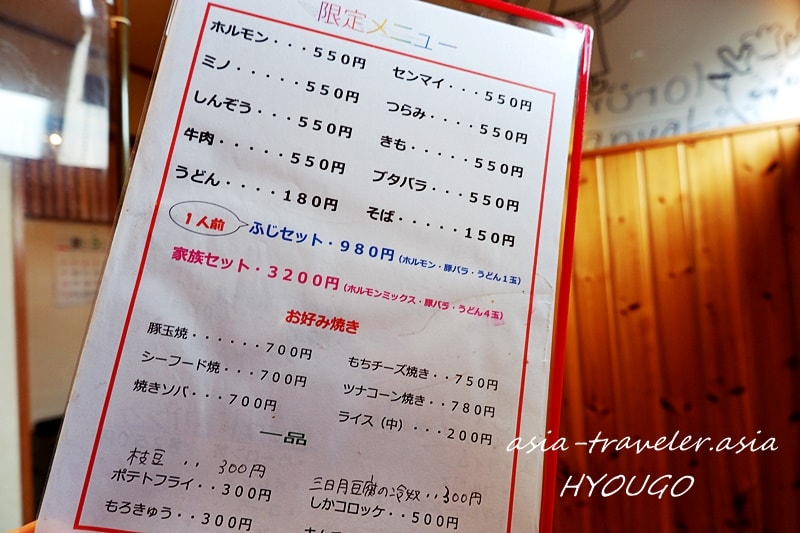 限定メニュー
ホルモン・・・550円 センマイ・・・550円
ミノ・・・・・550円 つらみ・・・・550円
しんぞう・・・550円 きも・・・・・550円
牛肉・・・・・550円 ブタバラ・・・550円
うどん・・・・180円 そば・・・・・150円
1人前 ふじセット・980円(ホルモン・豚バラ・うどん1玉)
家族セット・3200円(ホルモンミックス・豚バラ・うどん4玉)
お好み焼き
豚玉焼・・・・・・700円 もちチーズ焼き・・750円
シーフード焼・・・700円 ツナコーン焼き・・780円
焼きソバ・・・700円 ライス(中)・・・200円
一品
枝豆・・・300円 三日月豆腐の冷奴・・300円
ポテトフライ・・・300円 しかコロッケ・・500円
もろきゅう・・・300円
asia-traveler.asia
HYOUGO